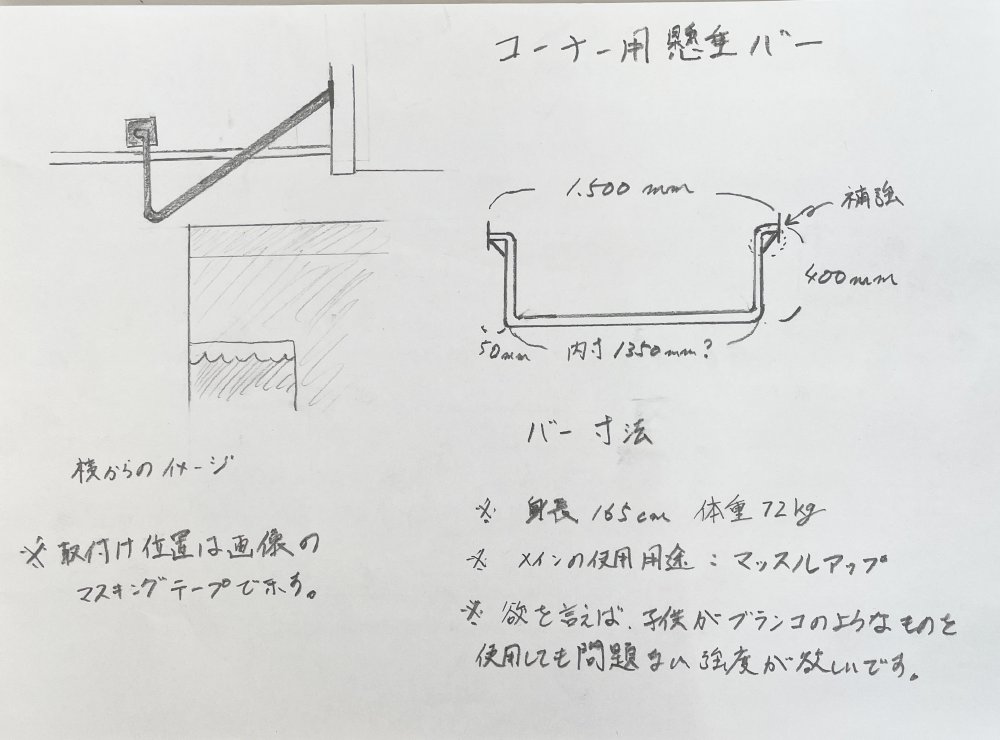 コーナー用懸垂バー
1.500mm
補強
400mm
50mm
内寸1350mm?
バー寸法
横からのイメージ
※取付け位置は画像の
マスキングテープで示す。
※ 身長 165cm 体重 72kg
※ メインの使用用途:マッスルアップ
※ 欲を言えば、子供がブランコのようなものを
使用しても問題ない強度が欲しいです。